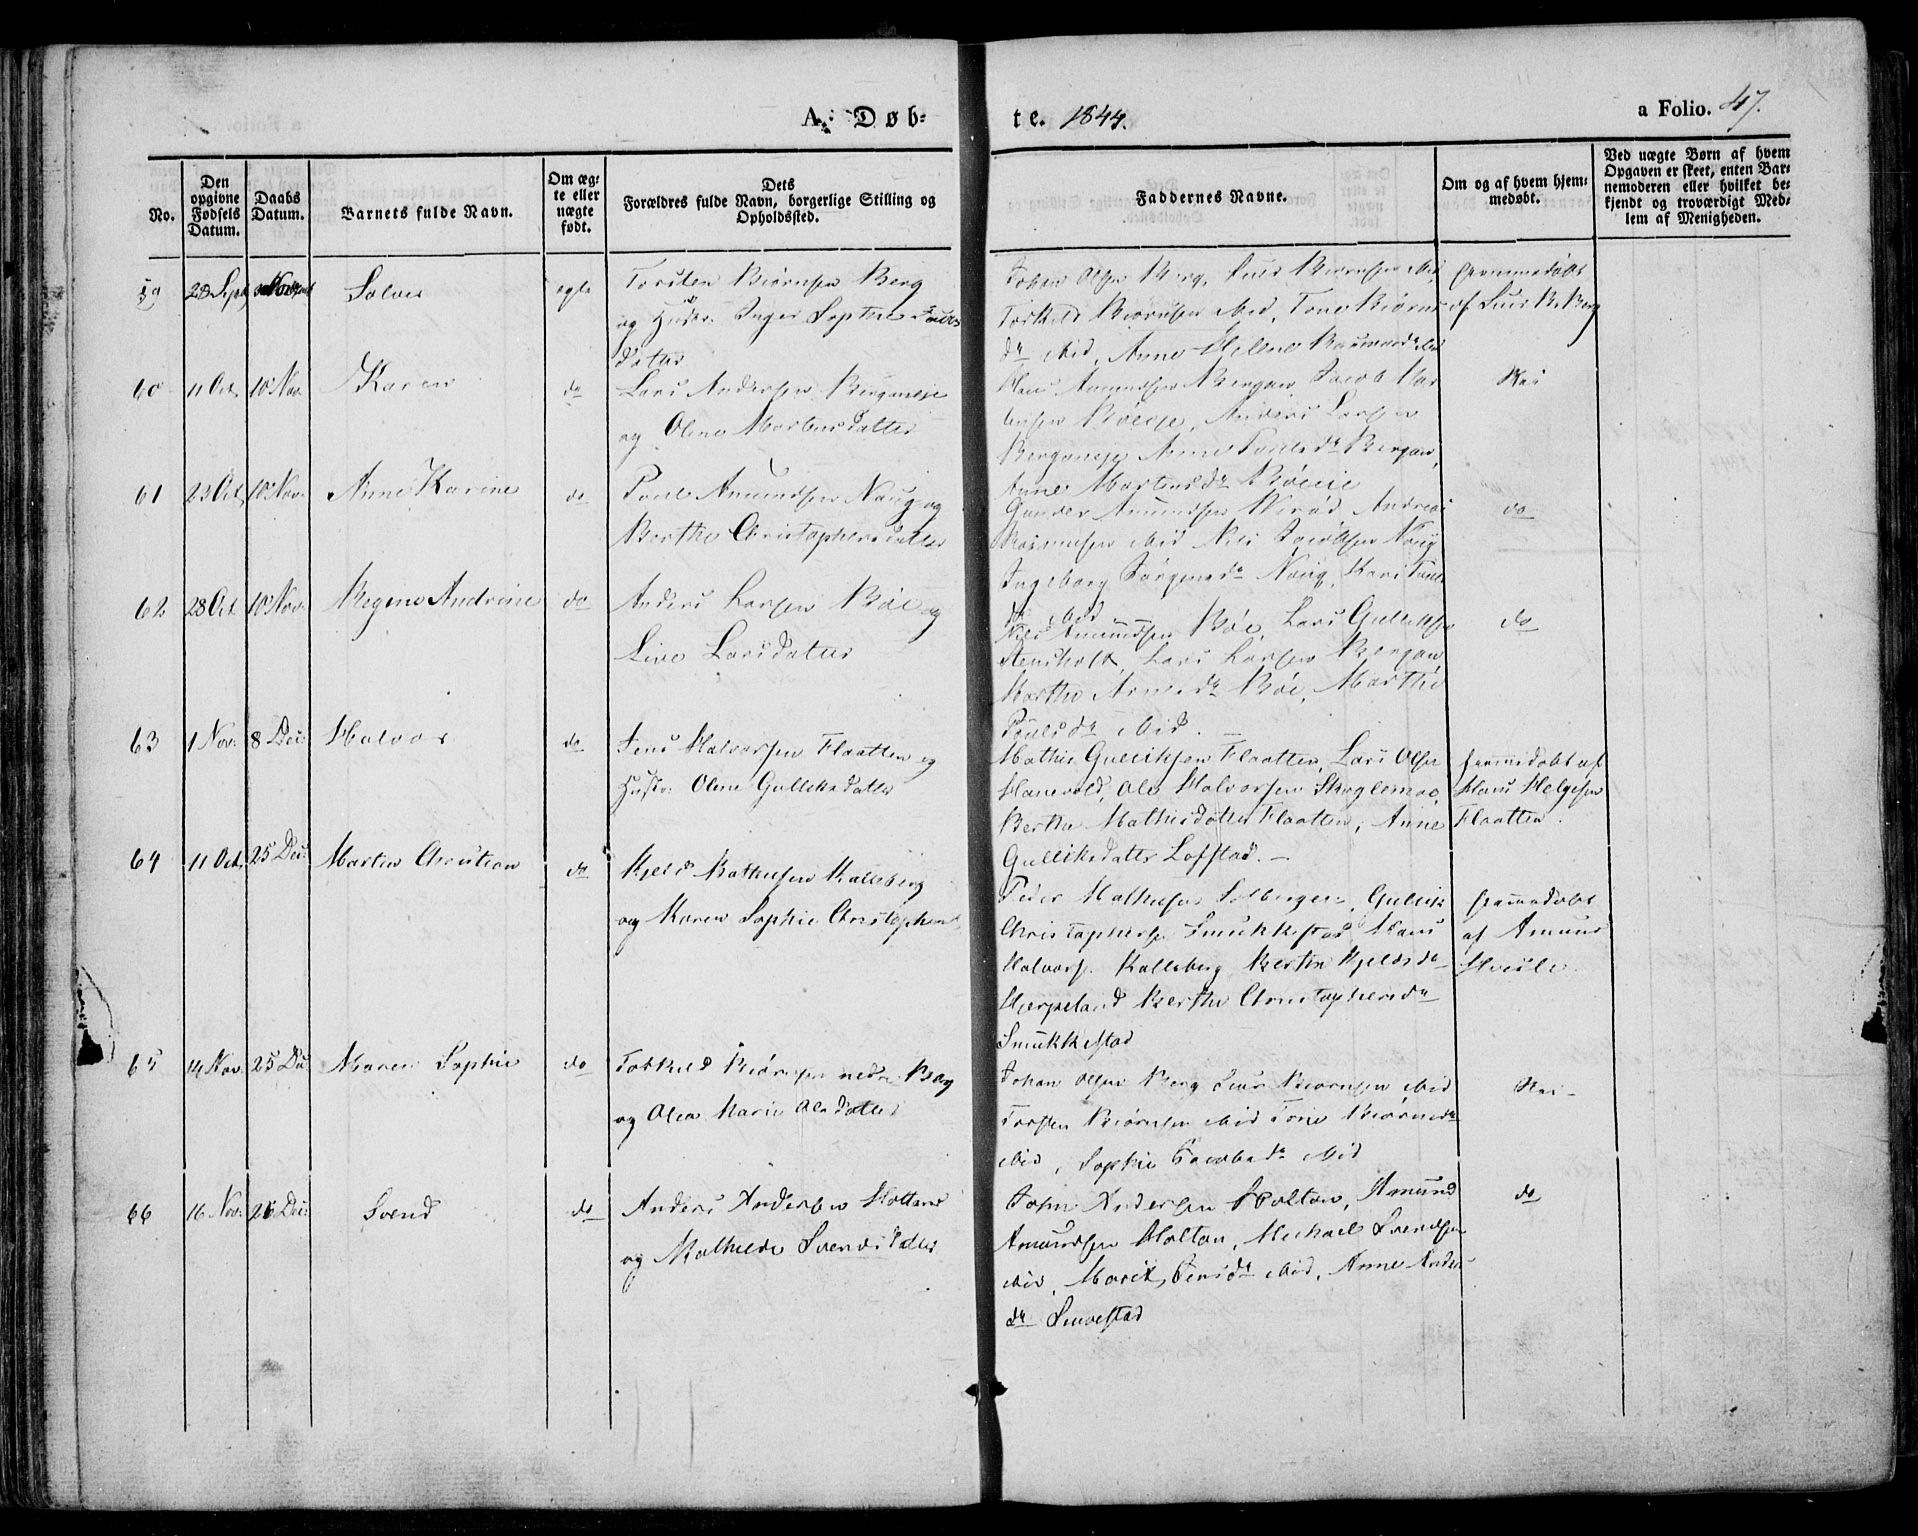 A. Døb-
te. 1844.
a Folio. 47.
No.
Den opgivne Fødsels Datum.
Daabs Datum.
Barnets fulde Navn.
Om ægte eller uægte født.
Dets Forældres fulde Navn, borgerlige Stilling og Opholdssted.
Faddernes Navne.
Om og af hvem hjemmedøbt.
Ved uægte Børn af hvem Opgaven er skeet, enten Barnemoderen eller hvilket bekjendt og troværdigt Medlem af Menigheden.
59 28 Sept
ægte Torsten Biørnsen Berg
og Hustr. Inger Sophie
datter
Johan Olsen Berg, Biørnsen ibid,
Torkild Biørnsen ibid, Tone Biørns
dr ibid, Anne Helene
hjemmedøbt
af B. Berg
60 11 Oct. 10 Nov. Karen do Lars Andersen Berganeje
og Olene Mortensdatter
Hans Amundsen Bergan, Jacob Mor
tensen Böeeje, Anders Larsen
Berganeje, Anne dr Bergan,
Anne Mortensdr Böeeie
Nei
61 23 Oct. 10 Nov. Anne Karine do Poul Amundsen Naug og
Berthe Christophersdatter
Gunder Amundsen, Andreas
Rasmusen ibid, Nils Jacobsen Naug
Ingeborg Jörgensdr Naug, Kari Pouls
dr ibid
do
62 28 Oct. 10 Nov. Regine Andrine do Anders Larsen Böe og
Live Larsdatter
Nils Amundsen Böe, Lars Gulliksen
Stensholt, Lars Larsen Bergan,
Marthe dr Böe, Marthe
Poulsdr ibid.
do
63 1 Nov. 8 Dec. Halvor do Jens Halvorsen Flaatten og
Hustr. Olene Gulliksdatter
Mathis Gulliksen Flaatten, Lars Olsen
Hanevold, Ole Halvorsen
Berthe Mathisdatter Flaatten, Anne
Gulliksdatter Lofstad. —
hjemmedøbt af
Hans Helgesen
Flaatten.
64 11 Oct. 25 Dec. Martin Christian do Kjeld Mathisen Kalleberg
og Karen Sophie Christophers
Peder Mathisen Solberg, Gullik
Christophersen Smukkestad Hans
Halvors. Kalleberg Berthe Kjeldsdr
Hjerpeland Berthe Christophersdr
Smukkestad
hjemmedøbt
af Amund
65 14 Nov. 25 Dec. Maren Sophie do Torkild Biørnsen nedre Berg
og Olea Marie Olsdatter
Johan Olsen Berg Biørnsen ibid
Torsten Biørnsen ibid Tone Biørnsdr
ibid, Sophie Jacobsdr ibid
Nei —
66 16 Nov. 26 Dec. Svend do Anders Andersen Holtan
og Mathilde Svendsdatter
John Andersen Holtan, Amund
Amundsen Holtan, Michael Svendsen
ibid, Marit Jensdr ibid, Anne Anders
dr
do